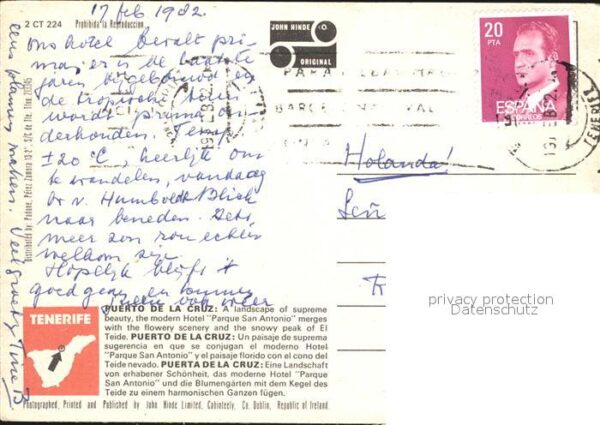 17 feb 1982.
2 CT 224 Prohibida la Reproduccion
JOHN HINDE
ORIGINAL
20
PTA
ESPAÑA
CORREOS
ons hotel bevalt pri-
ma, er is de laatste
jaren bijgebouwd en
de tropische tuin
wordt prima on-
derhouden. Temp.
±20 °C, heerlijk om
te wandelen, vandaag
br v. Humboldt Blick
naar beneden. Iets
meer zon zou echter
welkom zijn
Hopelijk blijft +
goed gaan en kunnen
ook weer
plannen maken. Veel
Holanda!
Señ
Distributed by Padone, Pérez Zamora
TENERIFE
PUERTO DE LA CRUZ: A landscape of supreme
beauty, the modern Hotel "Parque San Antonio" merges
with the flowery scenery and the snowy peak of El
Teide. PUERTO DE LA CRUZ: Un paisaje de suprema
sugerencia en que se conjugan el moderno Hotel
"Parque San Antonio" y el paisaje florido con el cono del
Teide nevado. PUERTA DE LA CRUZ: Eine Landschaft
von erhabener Schönheit, das moderne Hotel "Parque
San Antonio" und die Blumengärten mit dem Kegel des
Teide zu einem harmonischen Ganzen fügen.
Photographed, Printed and Published by John Hinde Limited, Cabinteely, Co. Dublin, Republic of Ireland.
privacy protection
Datenschutz